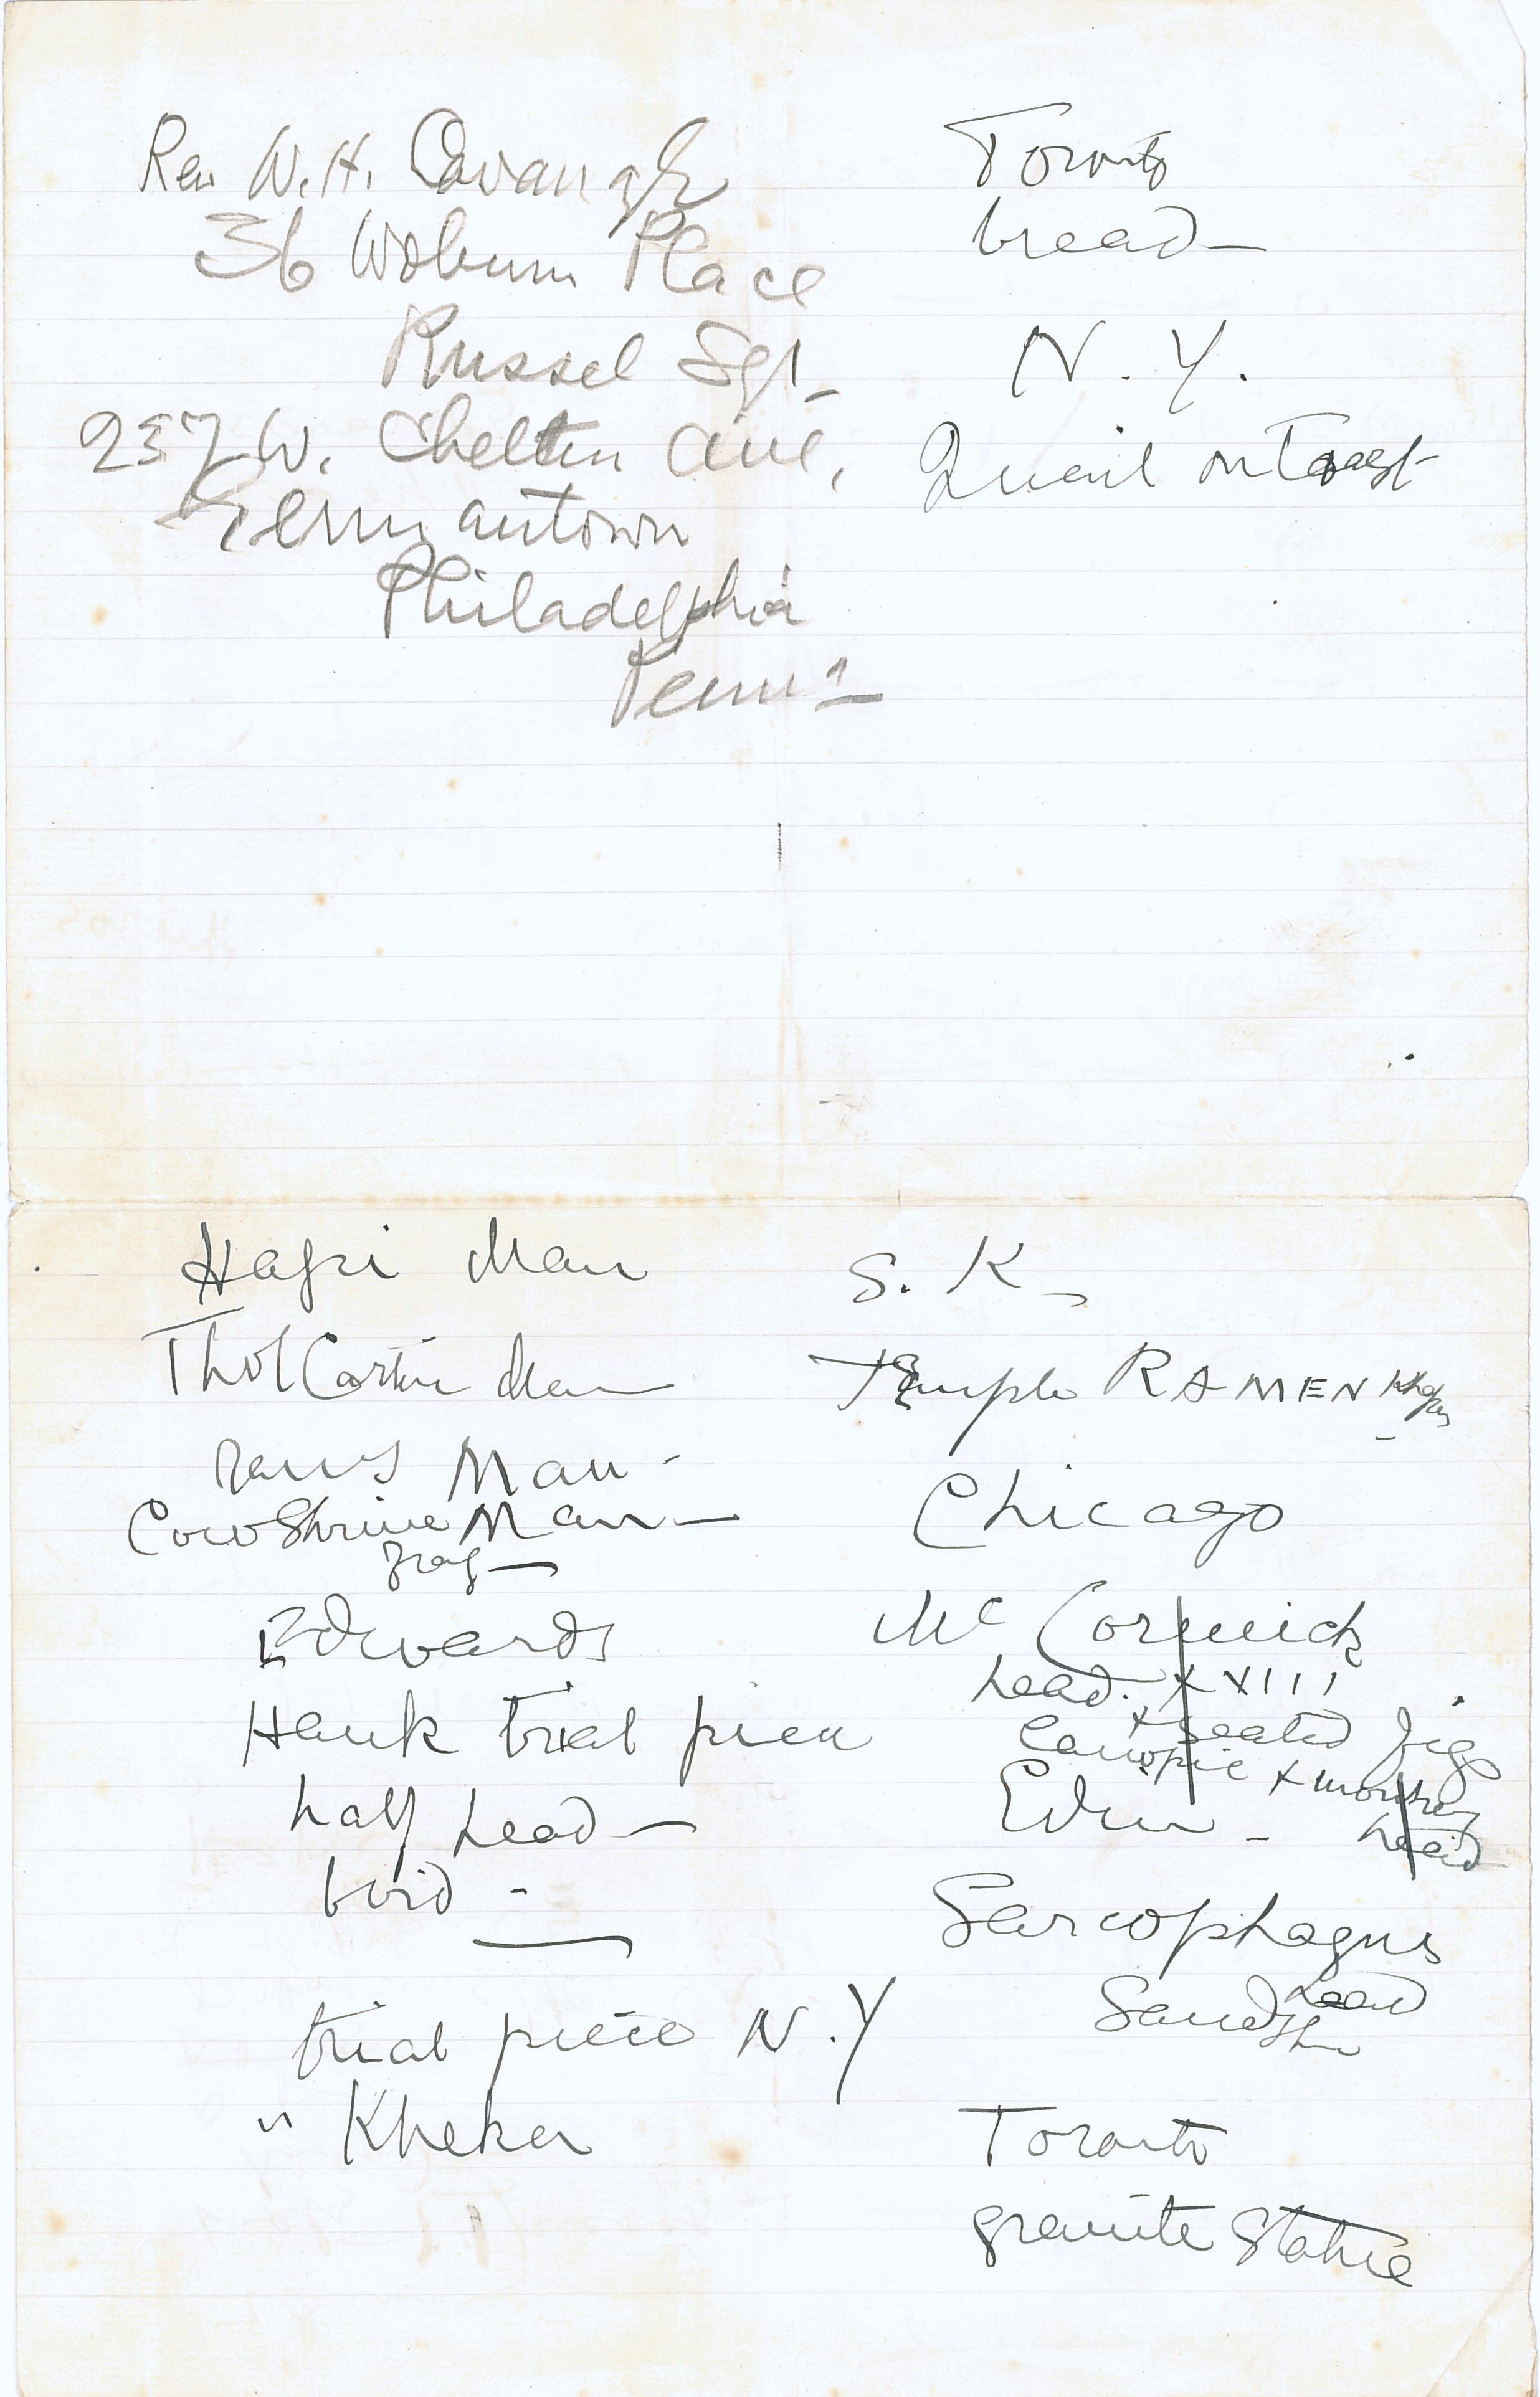 Rev W. H. Cavanagh
36 Woburn Place
Russel Sqr
237 W. Chelten Ave,
Germantown
Philadelphia
Penna
Toronto
bread
N. Y.
Quail on Toast
Hapi Man
Man
Man
Cow Shrine Man
frag
Edwards
Hawk trial piece
half head
bird
trial piece N.Y
" Kheker
S. K
Temple RAMEN
Chicago
Mc Cormick
head. XVIII
+ seated figs
Canopic + monkey
head
Edin
Sarcophagus
head
Sandstn
Toronto
granite Statue